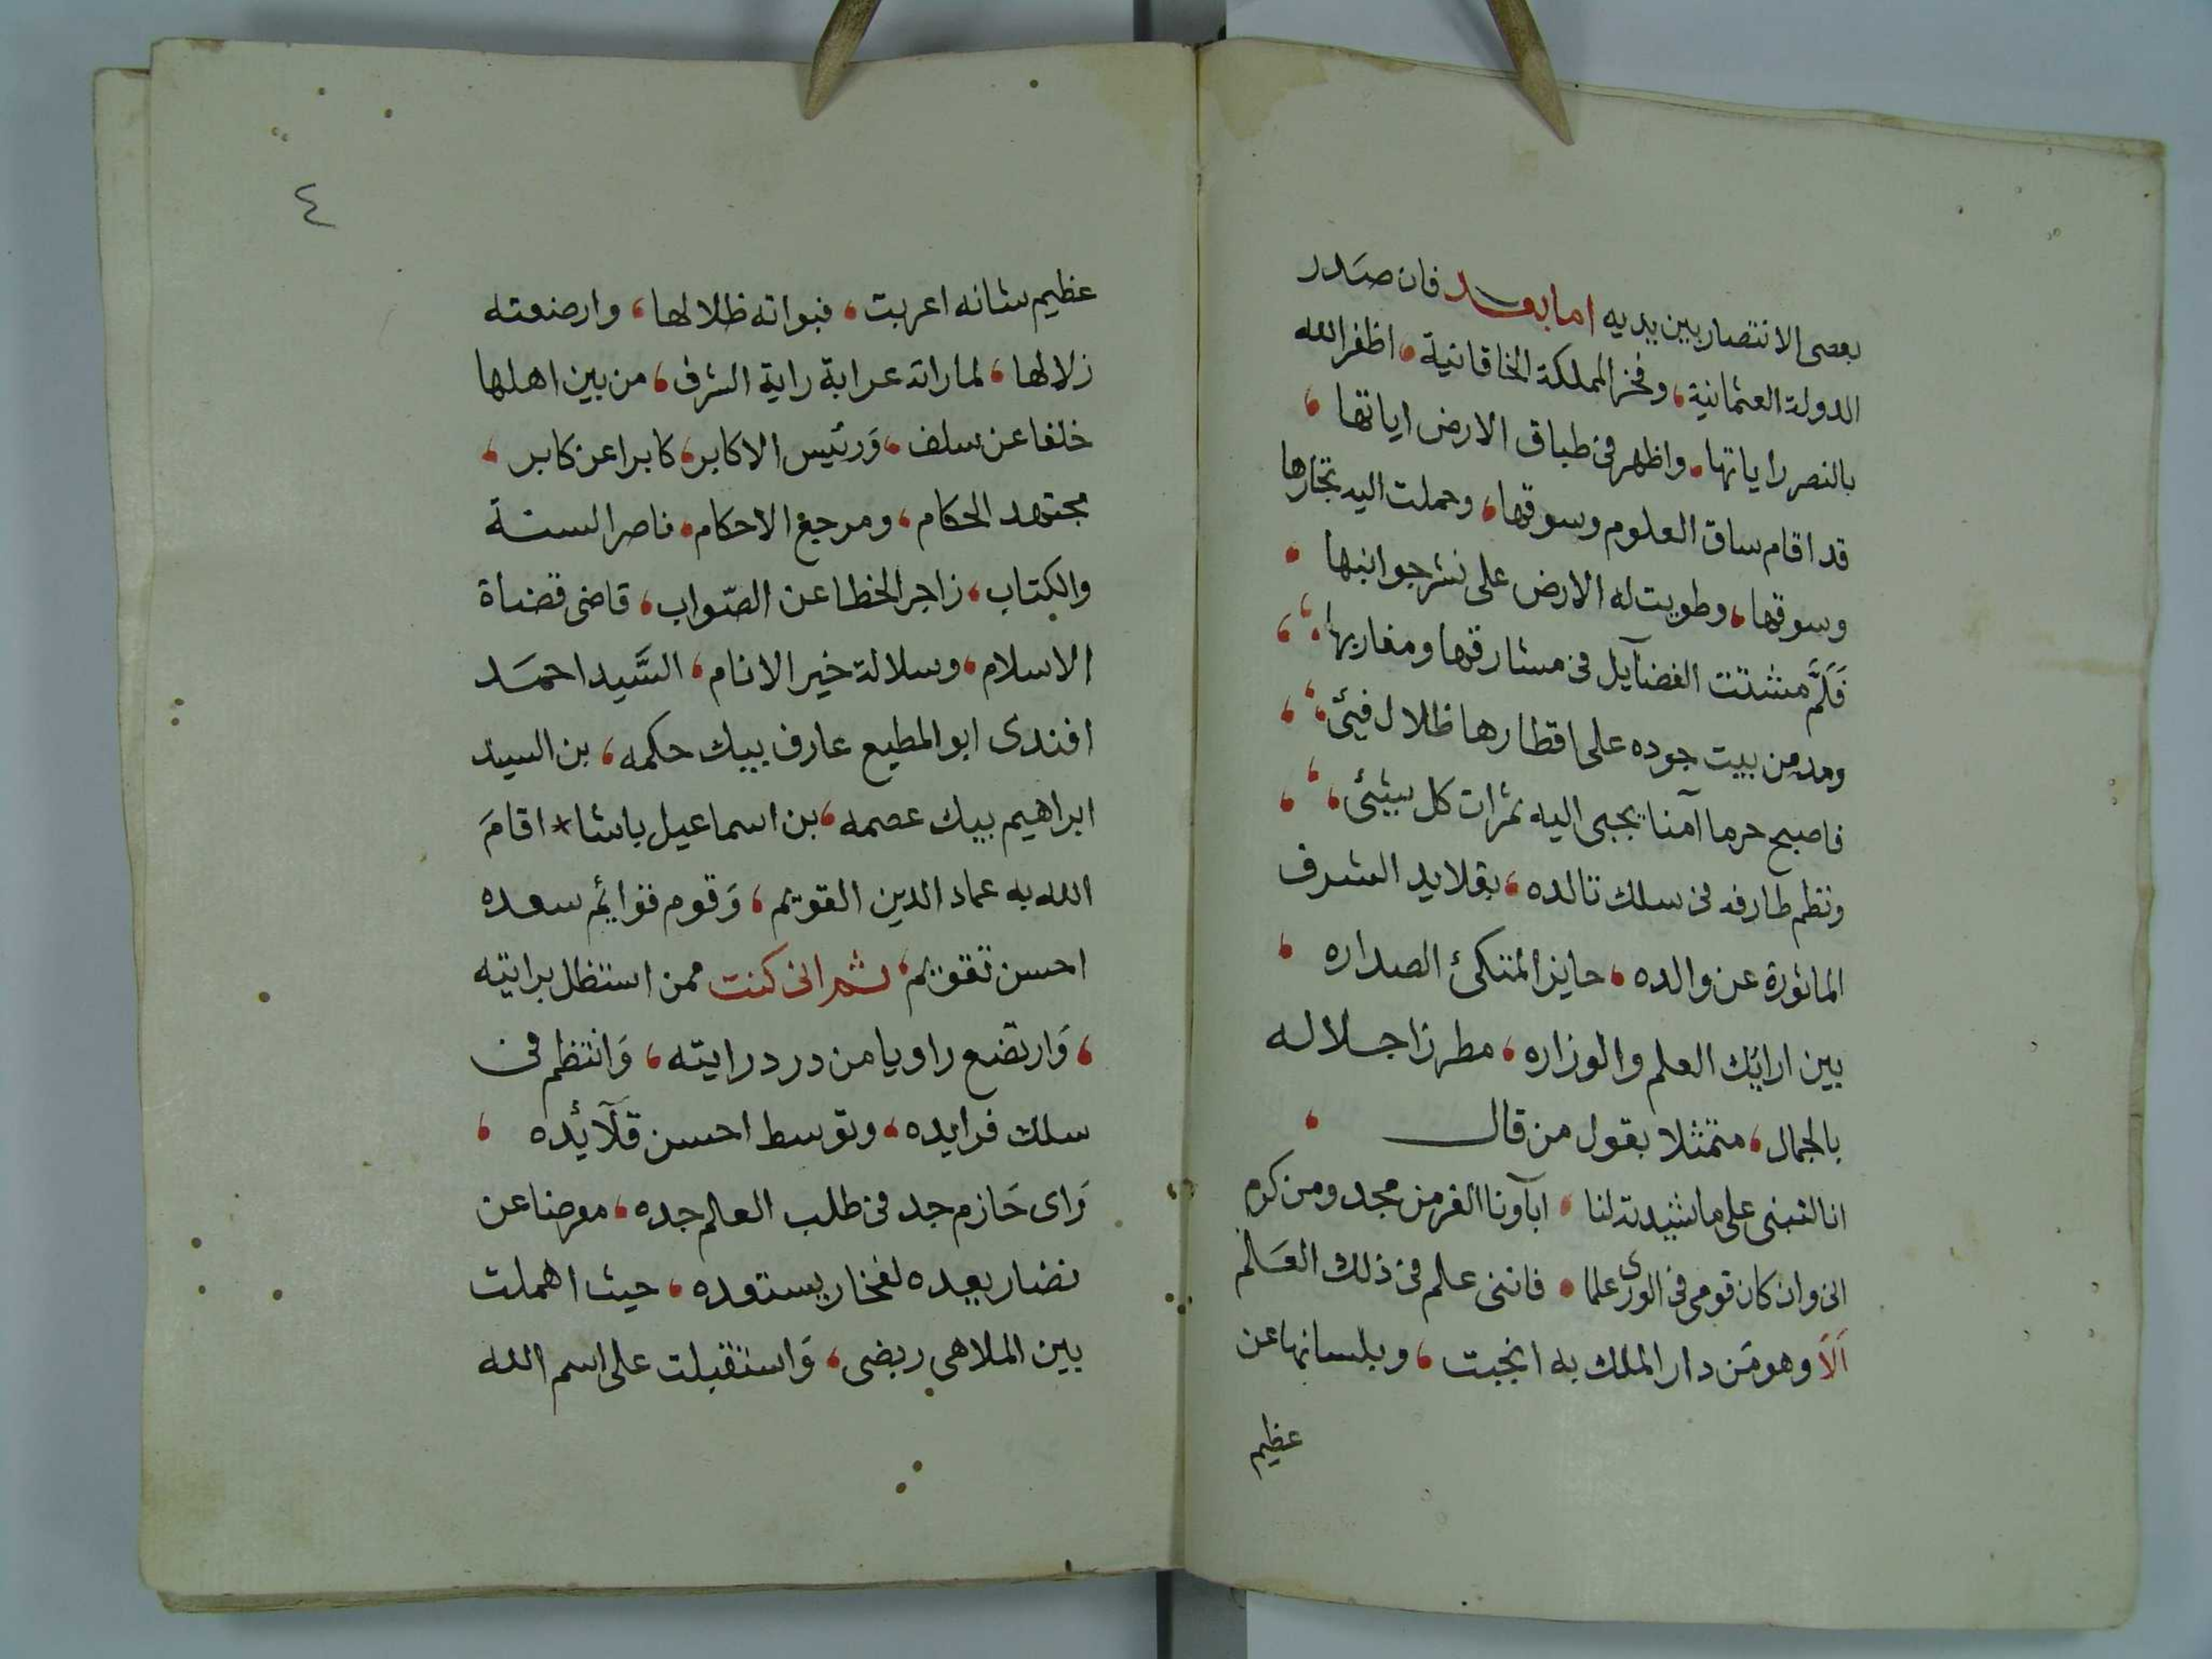 بعصى الانتصار بين يديه اما بعد فان صَدر
الدولة العثمانية، وفخر المملكة الخاقانية، اظفر الله
بالنصر راياتها، واظهر فى طباق الارض اياتها،
قد اقام ساق العلوم وسوقها، وحملت اليه تجارها
وسوقها، وطويت له الارض على نشر جوانبها،
فَلَمَّ مشتت الفضآيل فى مشارقها ومغاربها،
ومد من بيت جوده على اقطارها ظلال فيئ،
فاصبح حرما آمنا يجبى اليه ثمرات كل شيئ،
ونظم طارفه فى سلك تالده، بقلايد الشرف
الماثورة عن والده، حايز المتكئ الصداره،
بين ارايك العلم والوزاره، مطرزا جلاله
بالجمال، متمثلا بقول من قال،
انا لنبنى على ما شيدته لنا، ابآونا الغر من مجد ومن كرم
انى وان كان قومى فى الورى علما، فاننى علم فى ذلك العَلم
اَلاَ وهو مَن دار الملك به انجبت، وبلسانها عن
عظيم
٤
عظيم شانه اعربت، فبواته ظلالها، وارضعته
زلالها، لما راته عرابة راية الشرف، من بين اهلها
خلفا عن سلف، وَرئيس الاكابر، كابرا عن كابر،
مجتهد الحكام، ومرجع الاحكام، ناصر السنة
والكتاب، زاجر الخطا عن الصّواب، قاضى قضاة
الاسلام، وسلالة خير الانام، السَّيد احمَد
افندى ابو المطيع عارف بيك حكمه، بن السيد
ابراهيم بيك عصمه، بن اسماعيل باشا * اقامَ
الله به عماد الدين القويم، وَقوم قوايم سعده
احسن تقويم، ثم انى كنت ممن استظل برايته
، وَارتضع راويا من در درايته، وَانتظم فى
سلك فرايده، وتوسط احسن قَلآئده،
رَاى حَازم جد فى طلب العالم جده، معرضا عن
نضار يعده لفخار يستعده، حيث اهملت
بين الملاهى ربضى، وَاستقبلت على اسم الله